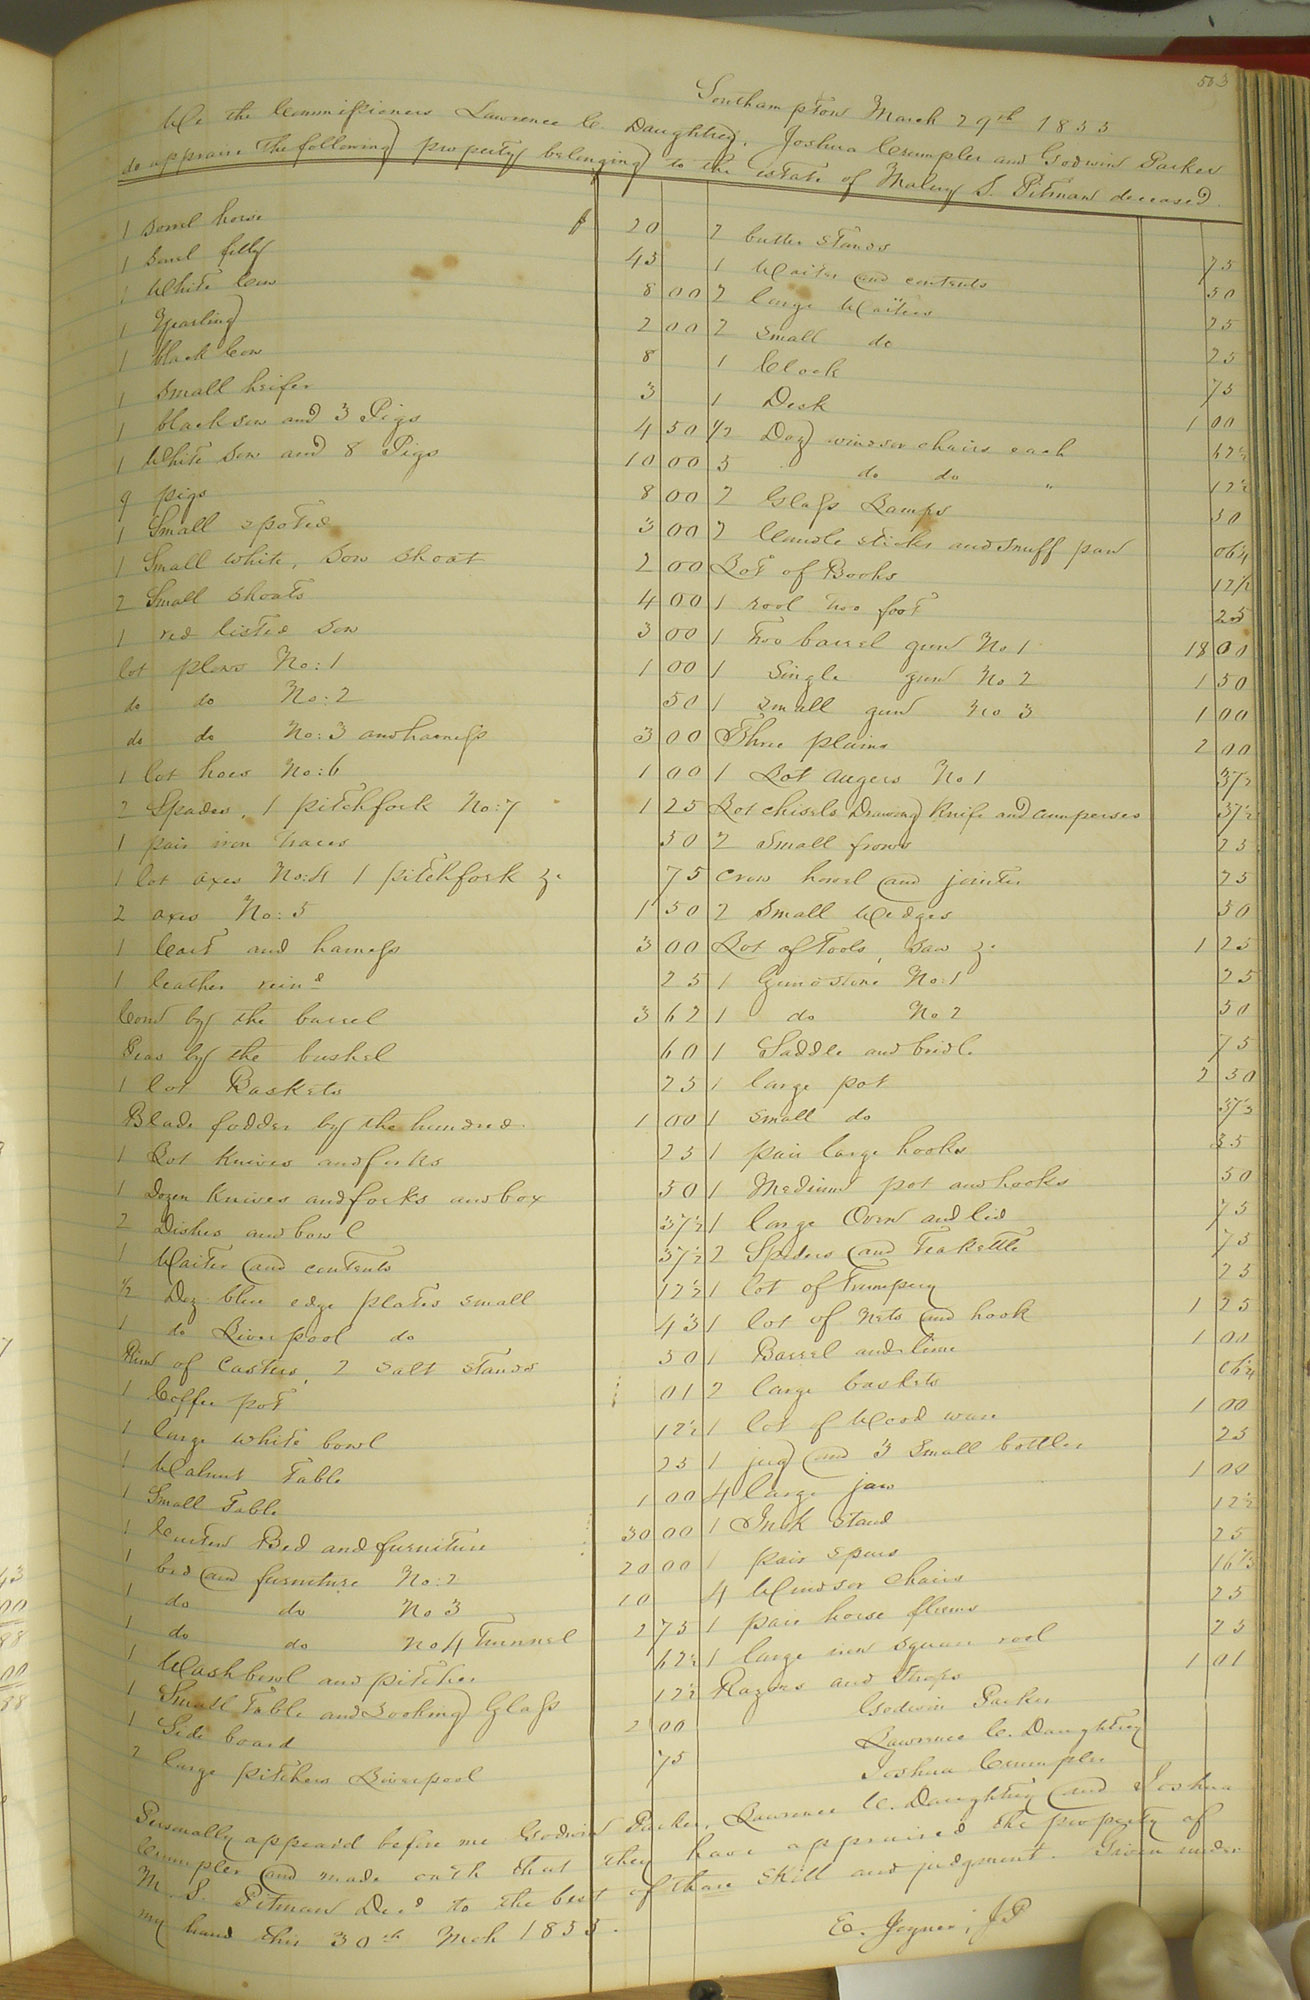 503
Southampton March 29th 1855
We the Commissioners Lawrence C. Daughtrey, Joshua Crumpler and Godwin Parker
do appraise the following property belonging to the estate of M S. Pitman deceased.
1 sorrel horse $ 20
1 sorel filly 45
1 White Cow 8 00
1 Yearling 2 00
1 black Cow 8
1 small heifer 3
1 black sow and 3 Pigs 4 50
1 White Sow and 8 Pigs 10 00
9 pigs 8 00
1 Small spoted 3 00
1 Small white, Sow Shoat 2 00
2 Small Shoats 4 00
1 red listed Sow 3 00
lot plows No: 1 1 00
do do No: 2 50
do do No: 3 and harness 3 00
1 lot hoes No: 6 1 00
2 Spades, 1 pitchfork No: 7 1 25
1 pair iron traces 50
1 lot axes No: 4 1 pitchfork &c 75
2 axes No: 5 1 50
1 Cart and harness 3 00
1 leather rein 25
Corn by the barrel 3 62
Peas by the bushel 60
1 lot Baskets 25
Blade fodder by the hundred 1 00
1 Lot Knives and forks 25
1 Dozen Knives and forks and box 50
2 Dishes and bowl 37½
1 Waiter and contents 37½
½ Doz blue edge plates small 12½
1 do Liverpool do 43
of Casters, 2 salt stands 50
1 Coffee pot 01
1 large white bowl 12½
1 Walnut Table 25
1 Small Table 1 00
1 Curten Bed and furniture 30 00
1 bed and furniture No: 2 20 00
1 do do No 3 10
1 do do No 4 Trunnel 2 75
1 Wash bowl and pitcher 62½
1 Small Table and Looking Glass 12½
1 Side board 2 00
2 large pitchers Liverpool 75
2 butter stands 75
1 Waiter and contents 50
2 large Waiters 25
2 small do 25
1 Clock 75
1 Desk 1 00
½ Doz windsor chairs each 62½
5 do do " 12½
2 Glass Lamps 50
2 Candle sticks and snuff pan 06¼
Lot of Books 12½
1 rool two foot 25
1 Two barrel gun No 1 18 00
1 Single gun No 2 1 50
1 small gun No 3 1 00
Three plains 2 00
1 Lot augers No 1 37½
Lot chisels Drawing Knife and cumperses 37½
2 Small frows 25
Crow howel and jointer 25
2 Small Wedges 50
Lot of Tools, Saw &c 1 25
1 Grindstone No: 1 25
1 do No 2 50
1 Saddle and bridle 75
1 large pot 2 50
1 small do 37½
1 pair large hooks 25
1 Medium pot and hooks 50
1 large Oven and lid 75
2 Spiders and Teakettle 75
1 lot of Trumpery 25
1 lot of nets and hook 1 25
1 Barrel and lime 1 00
2 large baskets 06¼
1 lot of Wood ware 1 00
1 jug and 3 small bottles 25
4 large jars 1 00
1 Ink stand 12½
1 pair spurs 25
4 Windsor chairs 16⅔
1 pair horse fleems 25
1 large iron square rool 25
Razors and Strops 1 01
Godwin Parker
Lawrence C. Daughtrey
Joshua Crumpler
Personally appeard before me Godwin Parker, Lawrence C. Daughtrey and Joshua
Crumpler and made oath that they have appraised the property of
M. S. Pitman Decd to the best of thare skill and judgment. Given under
my hand this 30th Mch 1855.
E. Joyner, JP